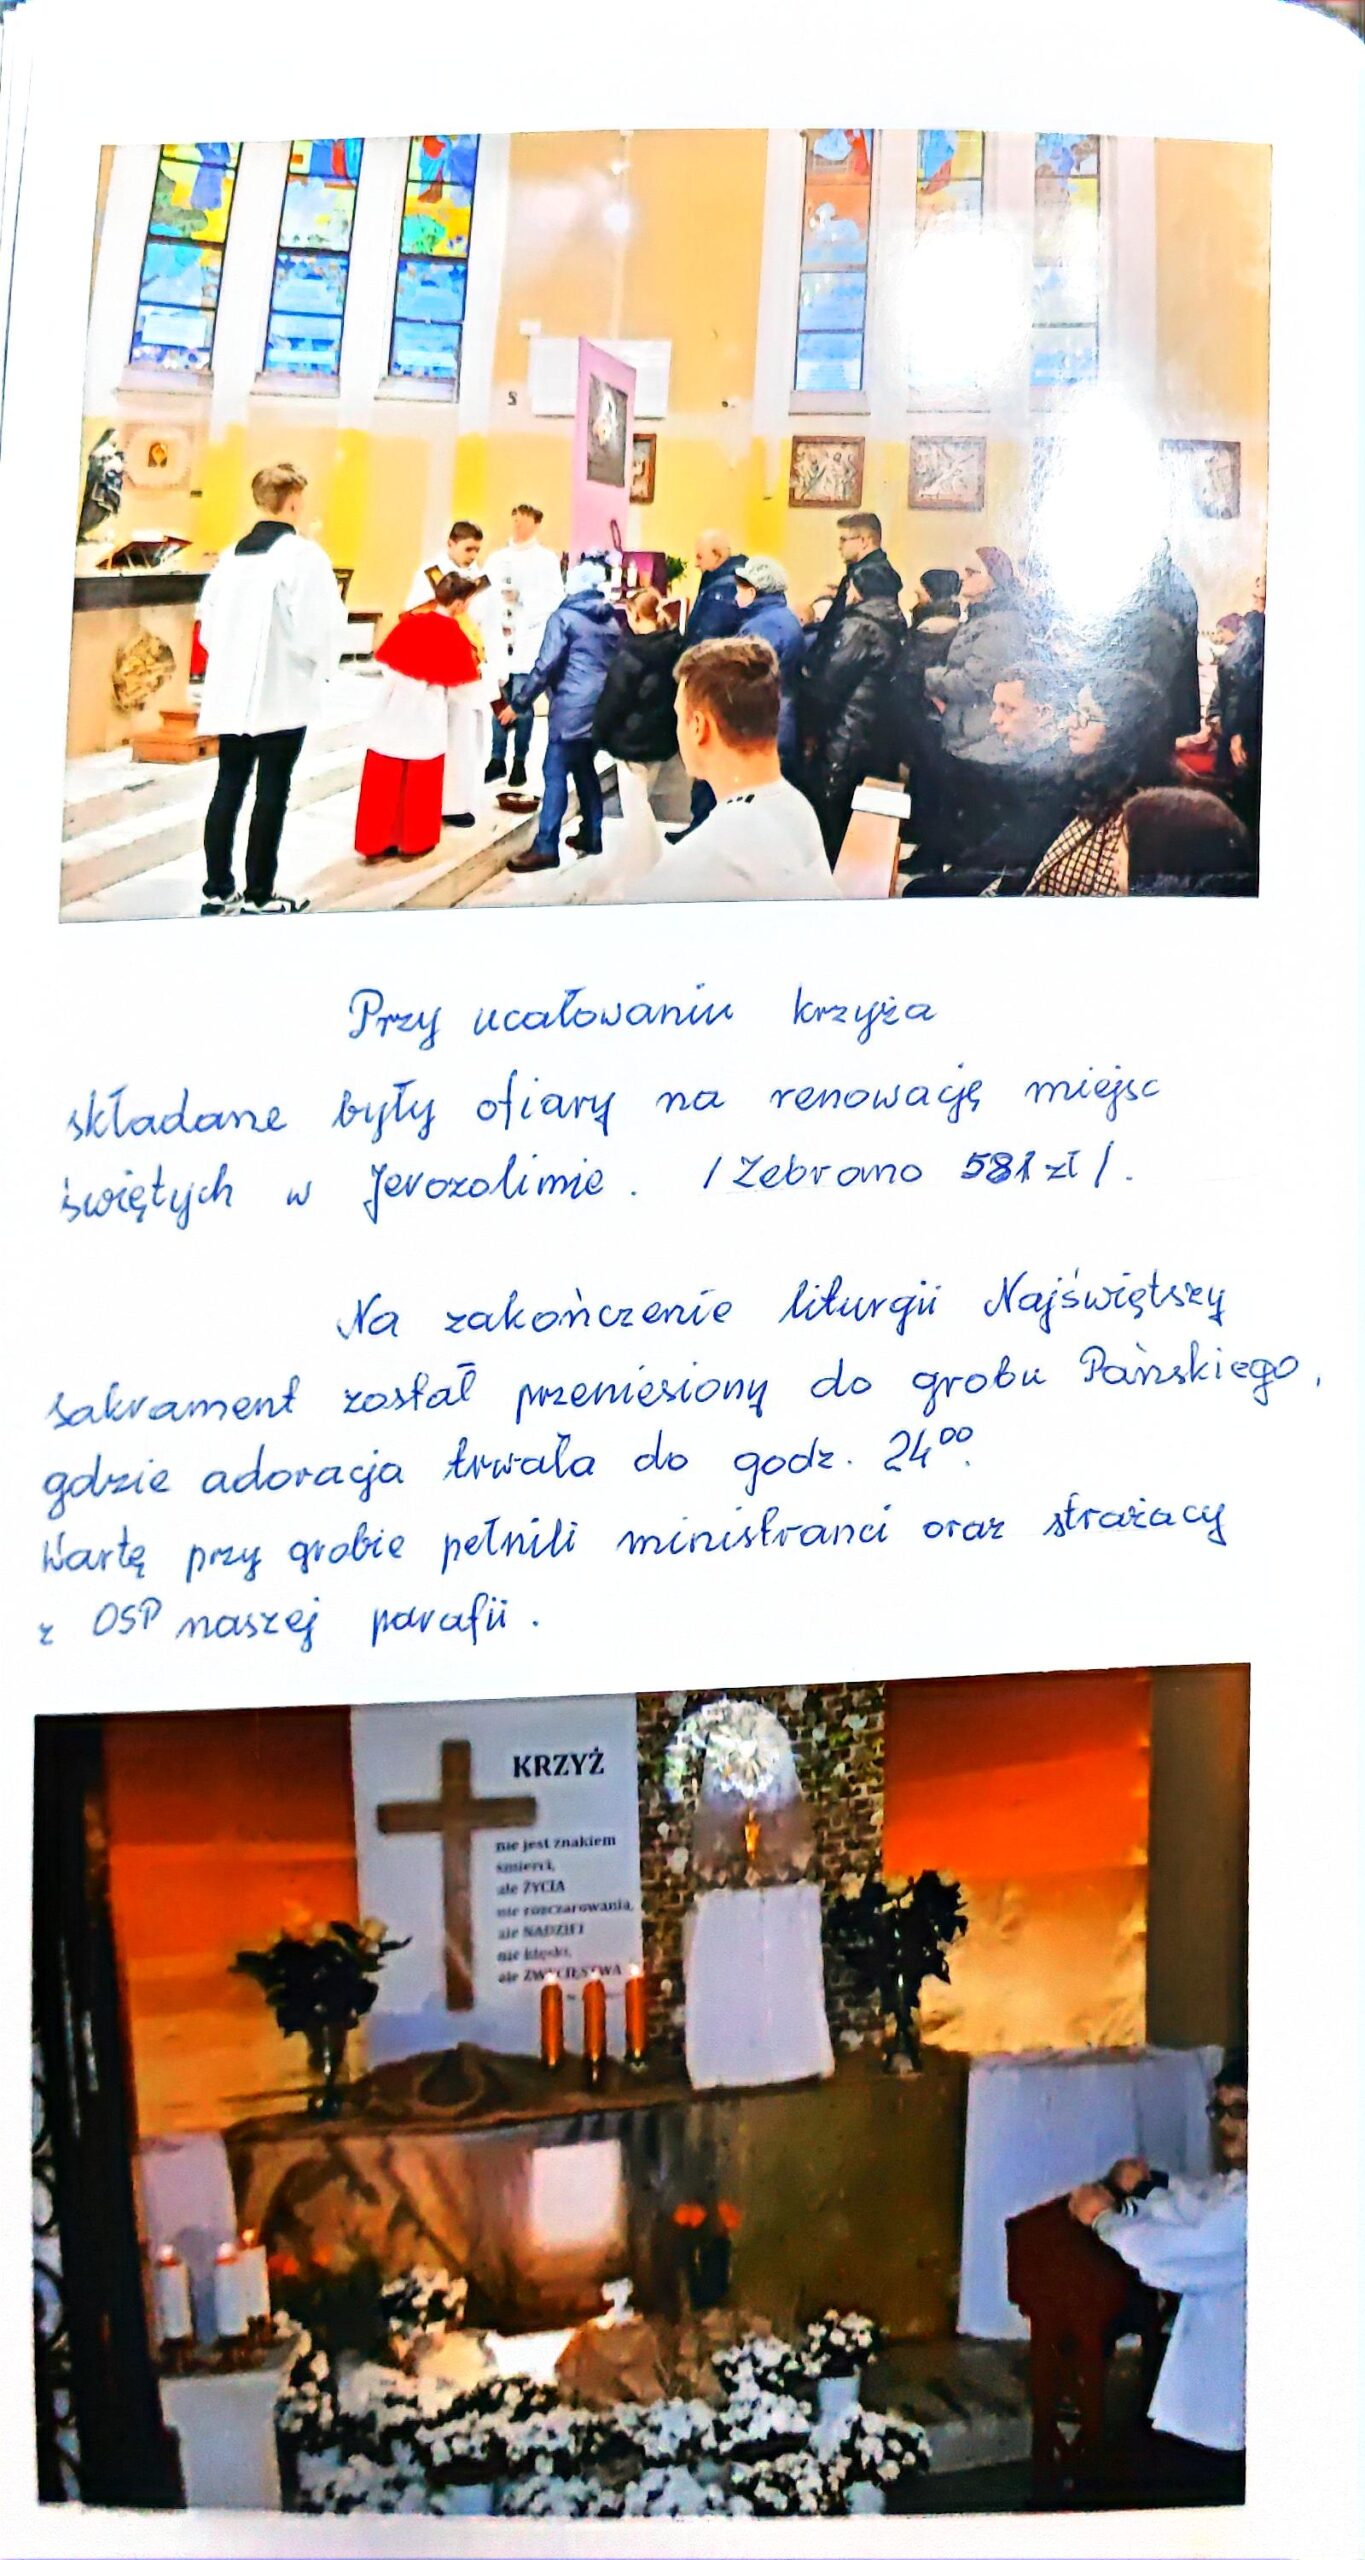 Przy ucałowaniu krzyża
składane były ofiary na renowację miejsc
świętych w Jerozolimie. / Zebrano 581 zł /.
Na zakończenie liturgii Najświętszy
sakrament został przeniesiony do grobu Pańskiego,
gdzie adoracja trwała do godz. 24⁰⁰.
Wartę przy grobie pełnili ministranci oraz strażacy
z OSP naszej parafii.
KRZYŻ
nie jest znakiem
śmierci,
ale ŻYCIA
nie rozczarowania,
ale NADZIEI
nie klęski,
ale ZWYCIĘSTWA